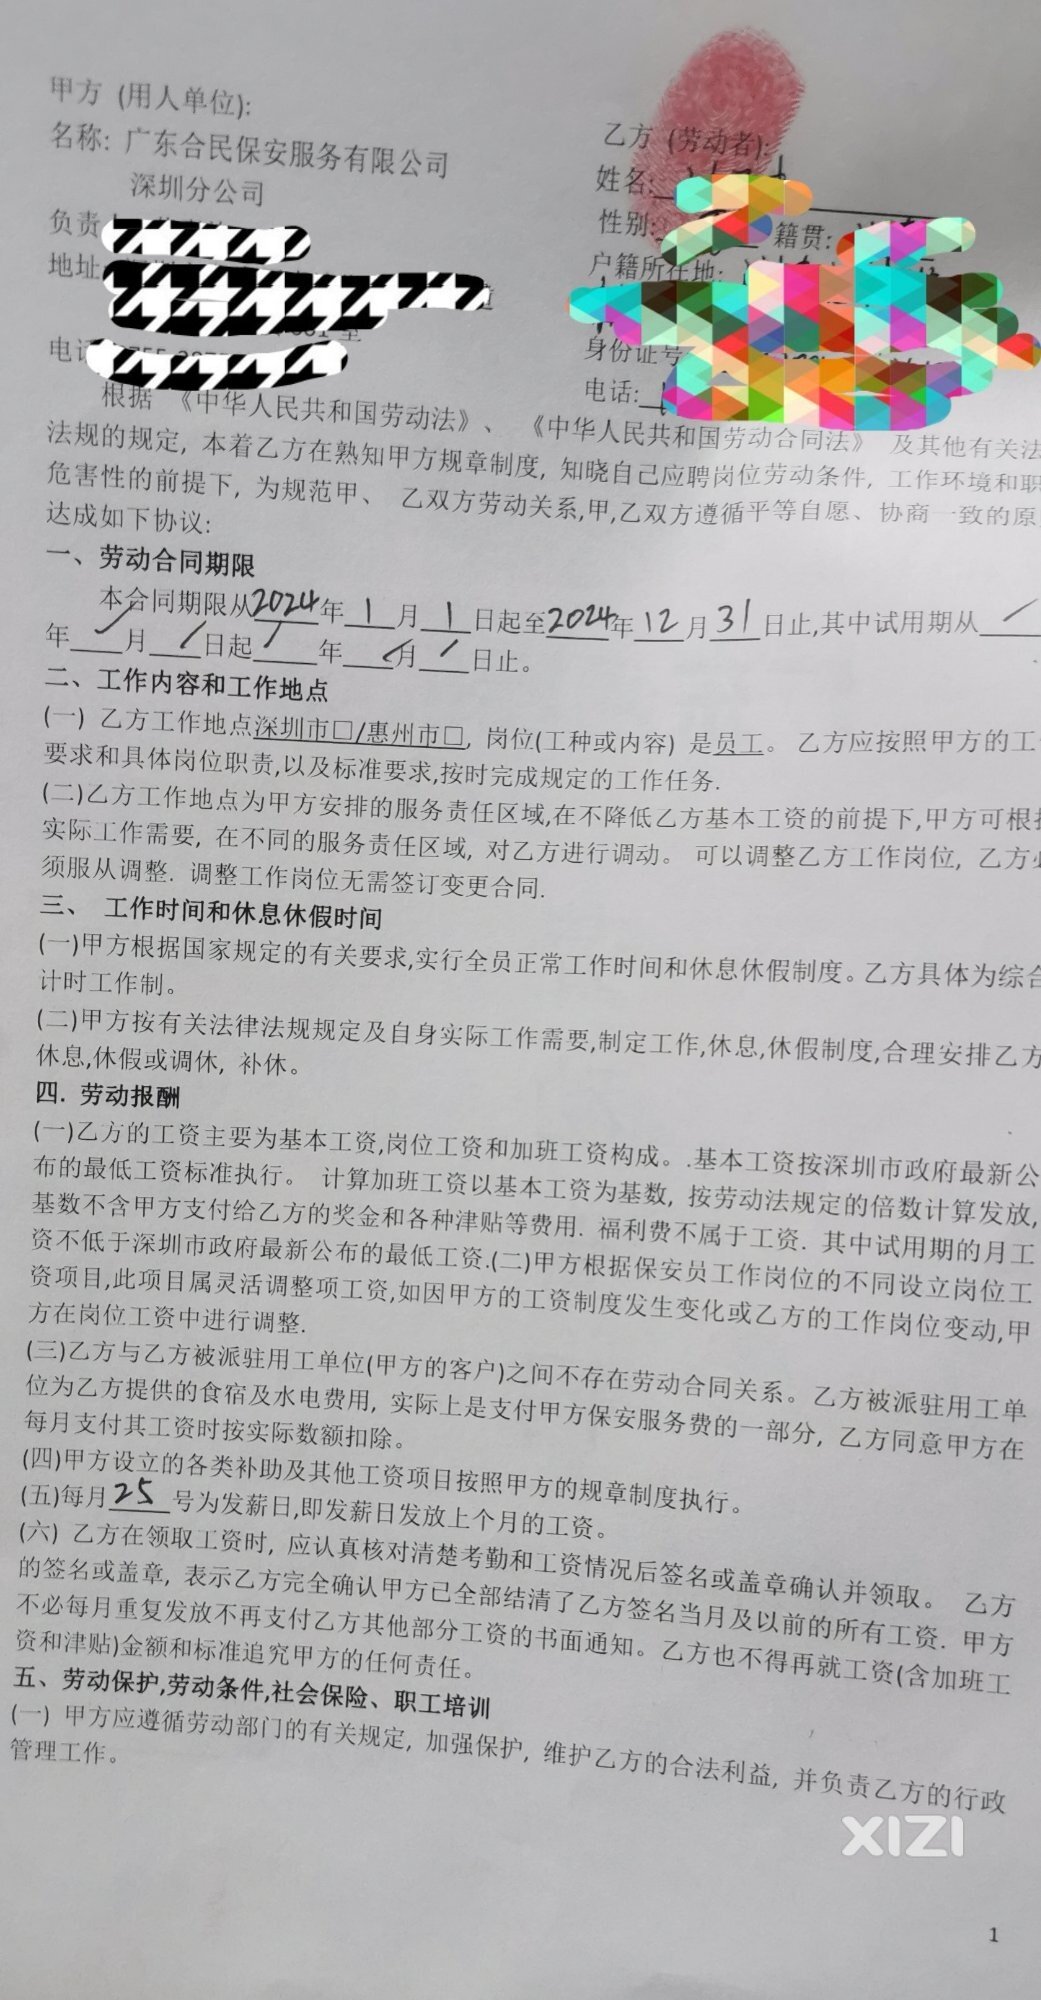 甲方 (用人单位):
名称: 广东合民保安服务有限公司
深圳分公司
负责
地址
电话
乙方 (劳动者):
姓名:
性别: 籍贯:
户籍所在地:
身份证号
电话:
根据 《中华人民共和国劳动法》、 《中华人民共和国劳动合同法》 及其他有关法
法规的规定, 本着乙方在熟知甲方规章制度, 知晓自己应聘岗位劳动条件, 工作环境和职
危害性的前提下, 为规范甲、 乙双方劳动关系,甲,乙双方遵循平等自愿、协商一致的原
达成如下协议:
一、劳动合同期限
本合同期限从2024年1月1日起至2024年12月31日止,其中试用期从
年 月 日起 年 月 日止。
二、工作内容和工作地点
(一) 乙方工作地点深圳市□/惠州市□, 岗位(工种或内容) 是员工。 乙方应按照甲方的工
要求和具体岗位职责,以及标准要求,按时完成规定的工作任务.
(二)乙方工作地点为甲方安排的服务责任区域,在不降低乙方基本工资的前提下,甲方可根据
实际工作需要, 在不同的服务责任区域, 对乙方进行调动。 可以调整乙方工作岗位, 乙方必
须服从调整. 调整工作岗位无需签订变更合同.
三、 工作时间和休息休假时间
(一)甲方根据国家规定的有关要求,实行全员正常工作时间和休息休假制度。乙方具体为综合
计时工作制。
(二)甲方按有关法律法规规定及自身实际工作需要,制定工作,休息,休假制度,合理安排乙方
休息,休假或调休, 补休。
四. 劳动报酬
(一)乙方的工资主要为基本工资,岗位工资和加班工资构成。.基本工资按深圳市政府最新公
布的最低工资标准执行。 计算加班工资以基本工资为基数, 按劳动法规定的倍数计算发放,
基数不含甲方支付给乙方的奖金和各种津贴等费用. 福利费不属于工资. 其中试用期的月工
资不低于深圳市政府最新公布的最低工资.(二)甲方根据保安员工作岗位的不同设立岗位工
资项目,此项目属灵活调整项工资,如因甲方的工资制度发生变化或乙方的工作岗位变动,甲
方在岗位工资中进行调整.
(三)乙方与乙方被派驻用工单位(甲方的客户)之间不存在劳动合同关系。乙方被派驻用工单
位为乙方提供的食宿及水电费用, 实际上是支付甲方保安服务费的一部分, 乙方同意甲方在
每月支付其工资时按实际数额扣除。
(四)甲方设立的各类补助及其他工资项目按照甲方的规章制度执行。
(五)每月25号为发薪日,即发薪日发放上个月的工资。
(六) 乙方在领取工资时, 应认真核对清楚考勤和工资情况后签名或盖章确认并领取。 乙方
的签名或盖章, 表示乙方完全确认甲方已全部结清了乙方签名当月及以前的所有工资. 甲方
不必每月重复发放不再支付乙方其他部分工资的书面通知。乙方也不得再就工资(含加班工
资和津贴)金额和标准追究甲方的任何责任。
五、劳动保护,劳动条件,社会保险、职工培训
(一) 甲方应遵循劳动部门的有关规定, 加强保护, 维护乙方的合法利益, 并负责乙方的行政
管理工作。
XIZI
1